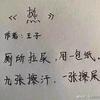 《热》
作者：王子
厕所拉屎，用一包纸，
九张擦汗，一张擦屎